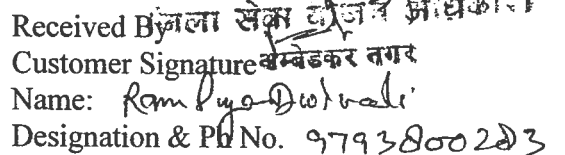 Received By जिला सेवा योजन अधिकारी
Customer Signature अम्बेडकर नगर
Name: Ram
Designation & Ph No. 9793800283